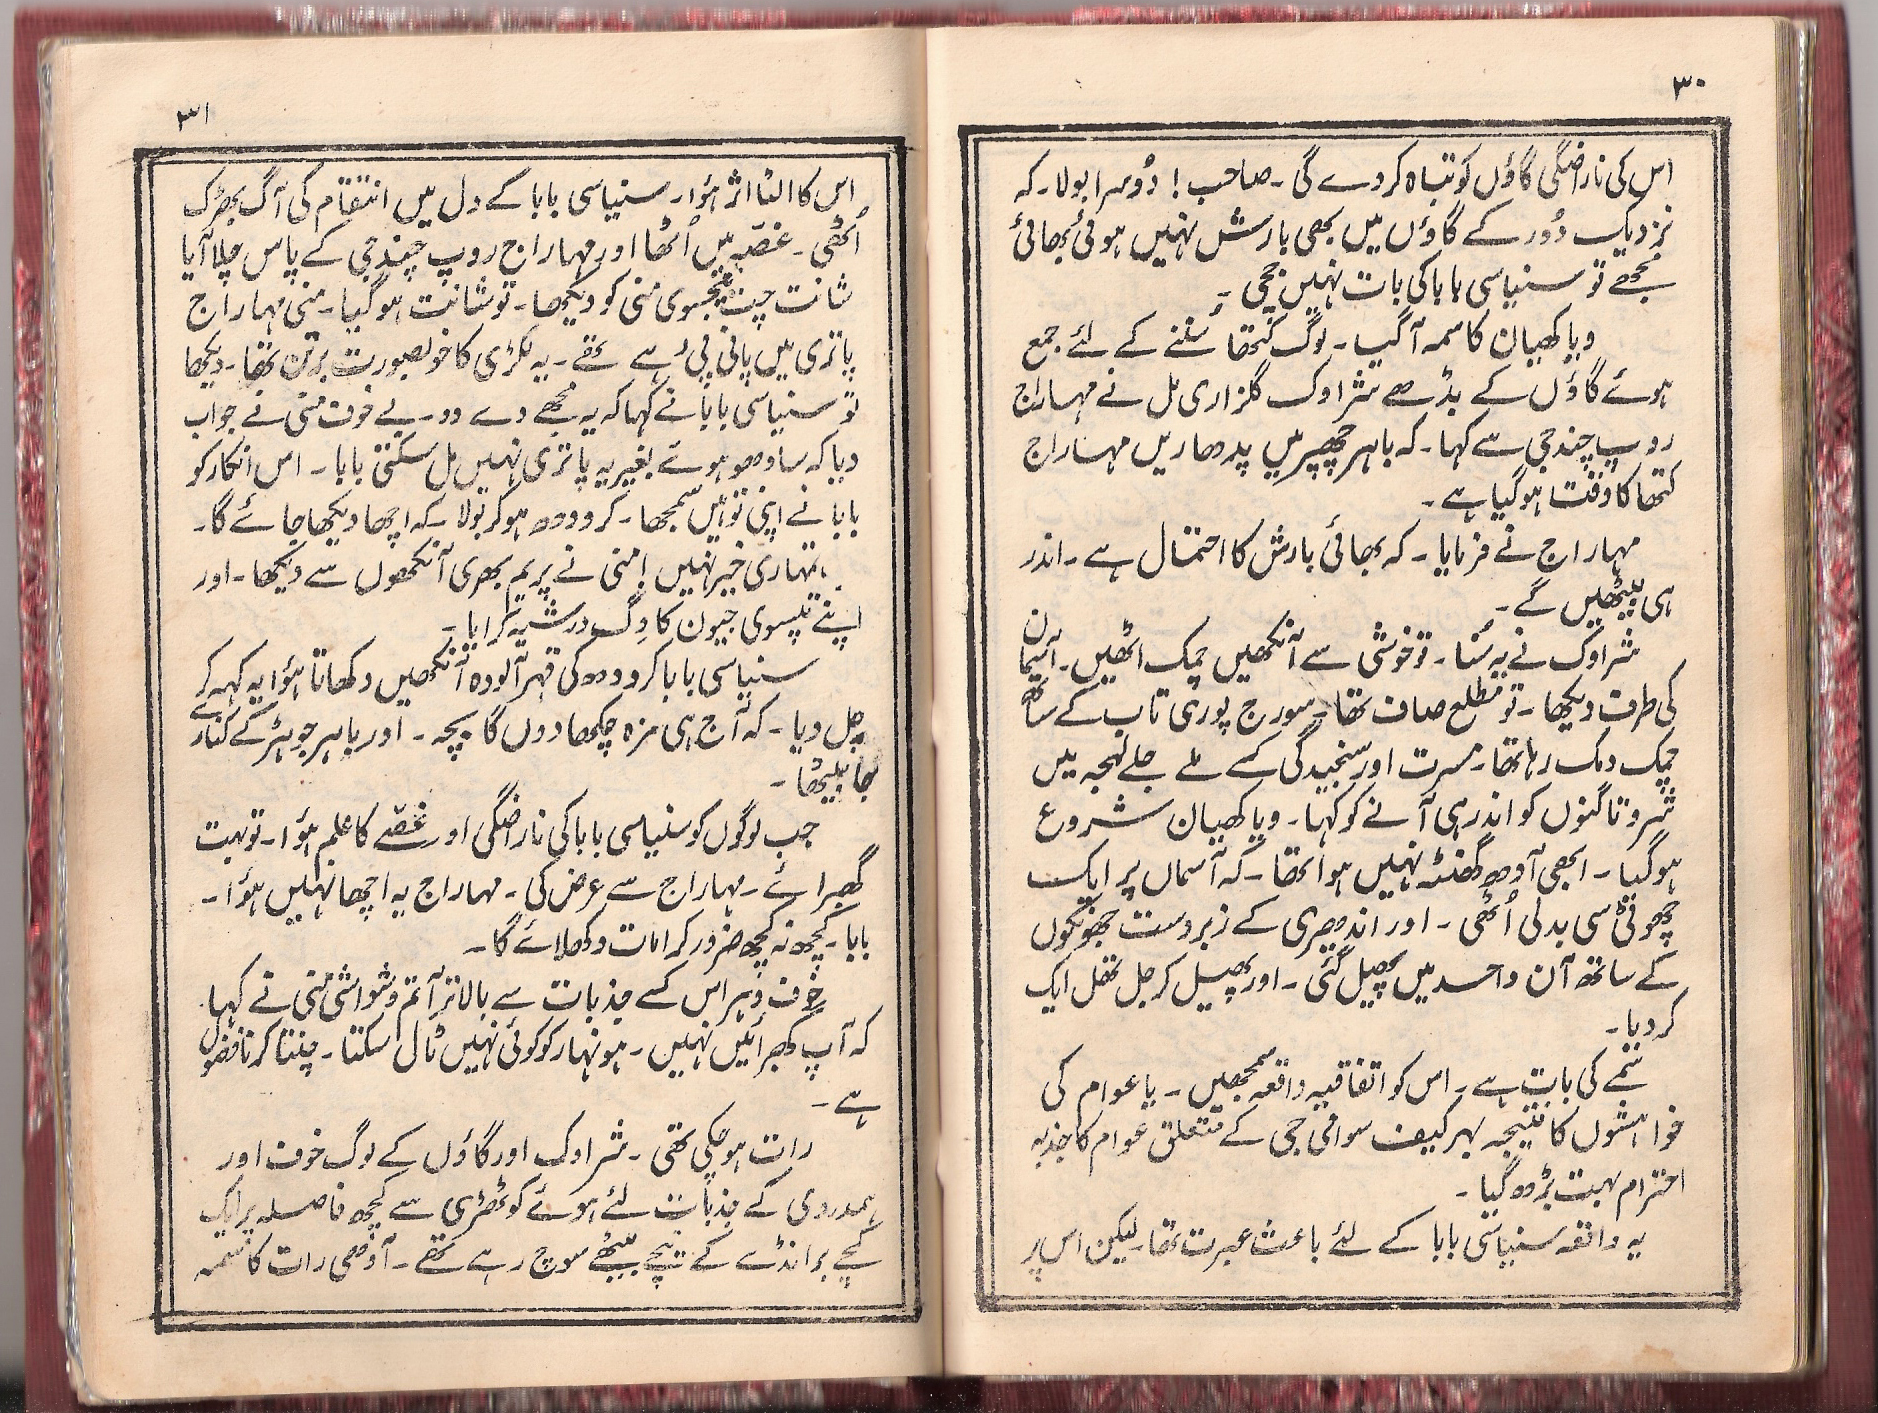 ۳۰
اس کی ناراضگی گاؤں کو تباہ کر دے گی۔ صاحب! دُوسرا بولا۔ کہ
نزدیک دُور کے گاؤں میں بھی بارش نہیں ہوئی بھائی
مجھے تو سنیاسی بابا کی بات نہیں جچی۔
ویاکھیان کا سمہ آ گیا۔ لوگ کتھا سُننے کے لئے جمع
ہوئے گاؤں کے بڈھے شراوک گلزاری مل نے مہاراج
روپ چند جی سے کہا۔ کہ باہر چھپر میں پدھاریں مہاراج
کتھا کا وقت ہو گیا ہے۔
مہاراج نے فرمایا۔ کہ بھائی بارش کا احتمال ہے۔ اندر
ہی بیٹھیں گے۔
شراوک نے یہ سُنا۔ تو خوشی سے آنکھیں چمک اٹھیں۔ آسمان
کی طرف دیکھا۔ تو مطلع صاف تھا۔ سورج پوری تاب کے ساتھ
چمک دمک رہا تھا۔ مسرت اور سنجیدگی کے ملے جلے لہجہ میں
شروتا گنوں کو اندر ہی آنے کو کہا۔ ویاکھیان شروع
ہو گیا۔ ابھی آدھ گھنٹہ نہیں ہوا تھا۔ کہ آسماں پر ایک
چھوٹی سی بدلی اُٹھی۔ اور اندھیری کے زبردست جھونکوں
کے ساتھ آن واحد میں پھیل گئی۔ اور پھیل کر جل تھل ایک
کر دیا۔
سَمے کی بات ہے۔ اس کو اتفاقیہ واقعہ سمجھیں۔ یا عوام کی
خواہشوں کا نتیجہ بہر کیف سوامی جی کے متعلق عوام کا جذبہ
احترام بہت بڑھ گیا۔
یہ واقعہ سنیاسی بابا کے لئے باعث عبرت تھا۔ لیکن اس پر
۳۱
اس کا الٹا اثر ہؤا۔ سنیاسی بابا کے دل میں انتقام کی آگ بھڑک
اُٹھی۔ غصّہ میں اُٹھا اور مہاراج روپ چند جی کے پاس چلا آیا
شانت چت تپسوی منی کو دیکھا۔ تو شانت ہو گیا۔ منی مہاراج
پاتری میں پانی پی رہے تھے۔ یہ لکڑی کا خوبصورت برتن تھا۔ دیکھا
تو سنیاسی بابا نے کہا کہ یہ مجھے دے دو۔ بے خوف منی نے جواب
دیا کہ سادھو ہوئے بغیر یہ پاتری نہیں مل سکتی بابا۔ اس انکار کو
بابا نے اپنی توہین سمجھا۔ کرودھ ہو کر بولا۔ کہ اچھا دیکھا جائے گا۔
تمہاری خیر نہیں! منی نے پریم بھری آنکھوں سے دیکھا۔ اور
اپنے تپسوی جیون کا دِگ درشیہ کرایا۔
سنیاسی بابا کرودھ کی قہر آلودہ آنکھیں دکھاتا ہؤا یہ کہہ کر
چل دیا۔ کہ آج ہی مزہ چکھا دوں گا بچہ۔ اور باہر جوہڑ کے کنارے
جا بیٹھا۔
جب لوگوں کو سنیاسی بابا کی ناراضگی اور غصّے کا علم ہؤا۔ تو بہت
گھبرائے۔ مہاراج سے عرض کی۔ مہاراج یہ اچھا نہیں ہؤا۔
بابا۔ کچھ نہ کچھ ضرور کرامات دکھلائے گا۔
خوف و ہراس کے جذبات سے بالاتر آتم وشواشی منی نے کہا۔
کہ آپ گھبرائیں نہیں۔ ہونہار کو کوئی نہیں ٹال سکتا۔ چنتا کرنا فضول
ہے۔
رات ہو چکی تھی۔ شراوک اور گاؤں کے لوگ خوف اور
ہمدردی کے جذبات لئے ہوئے کوٹھڑی سے کچھ فاصلہ پر ایک
کچے برانڈے کے نیچے بیٹھے سوچ رہے تھے۔ آدھی رات کا سمہ